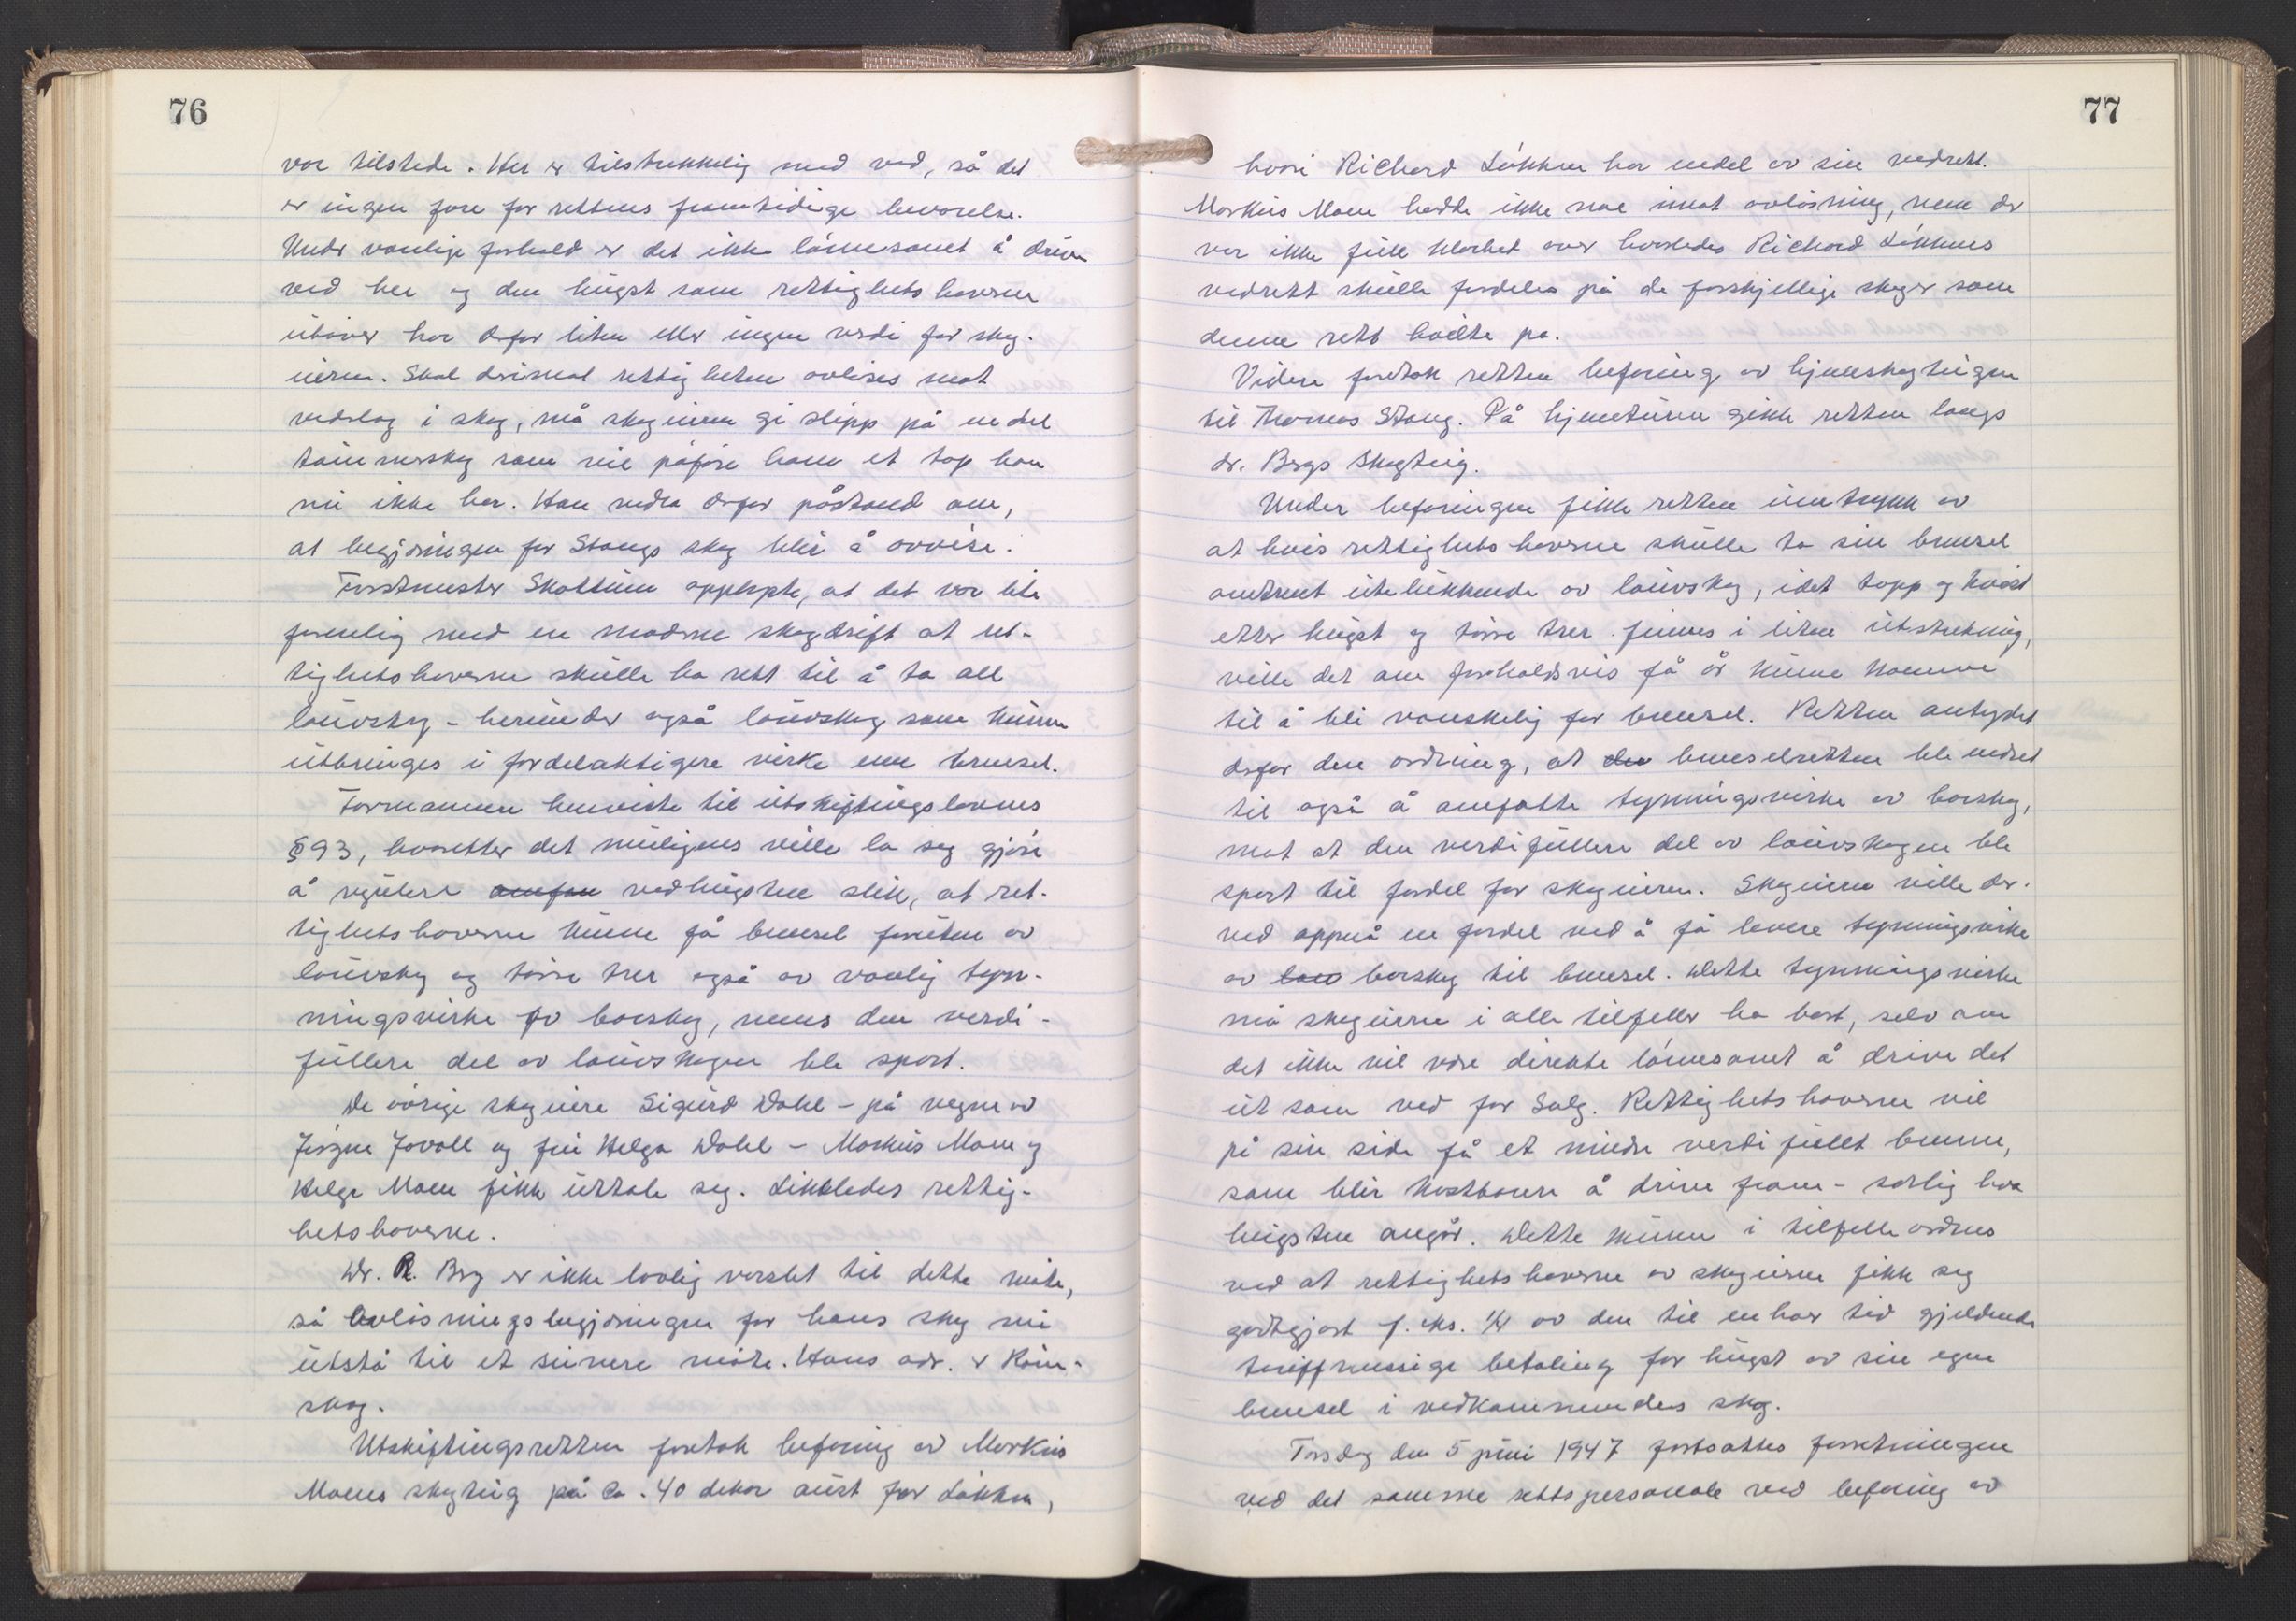 76
var tilstede. Her er tilstrekkelig med ved, så det
er ingen fare for rettens framtidige bevarelse.
Under vanlige forhold er det ikke lönnsomt å drive
ved her og den hugst som rettighetshaverne
utöver har derfor liten eller ingen verdi for skog-
eieren. Skal derimot rettigheten avlöses mot
vederlag i skog, må skogeieren gi slipp på en del
tömmerskog som vil påföre ham et tap han
nu ikke har. Han nedla derfor påstand om,
at begjæringen for Stangs skog blir å avvise.
Forstmester Skattum opplyste, at det var lite
forenlig med en moderne skogdrift at ret-
tighetshaverne skulle ha rett til å ta all
lauvskog - herunder også lauvskog som kunne
utbringes i fordelaktigere virke enn brensel.
Formannen henviste til utskiftingslovens
§ 93, hvoretter det muligens ville la seg gjöre
å regulere vedhugsten slik, at ret-
tighetshaverne kunne få brensel foruten av
lauvskog og törre trer også av vanlig tyn-
ningsvirke av barskog, mens den verdi-
fullere del av lauvskogen ble spart.
De övrige skogeiere Sigurd Dahl - på vegne av
Jörgen Jovall og fru Helga Dahl - Markus Moen og
Helge Moen fikk uttale seg. Likeledes rettig-
hetshaverne.
Dr. R. Berg er ikke lovlig varslet til dette möte,
så avlösningsbegjæringen for hans skog må
utstå til et senere möte. Hans adr. er Röm-
skog.
Utskiftingsretten foretok befaring av Markus
Moens skogteig på ca. 40 dekar aust for Lökken,
77
hvori Richard Lökken har endel av sin vedrett.
Markus Moen hadde ikke noe imot avlösning, men der
var ikke full klarhet over hvorledes Richard Lökkens
vedrett skulle fordeles på de forskjellige skoger som
denne rett hvilte på.
Videre foretok retten befaring av hjemskogteigen
til Thomas Stang. På hjemturen gikk retten langs
dr. Bergs skogteig.
Under befaringen fikk retten inntrykk av
at hvis rettighetshaverne skulle ta sin brensel
omtrent utelukkende av lauvskog, idet topp og kvist
etter hugst og törre trer finnes i liten utstrekning,
ville det om forholdsvis få år kunne komme
til å bli vanskelig for brensel. Retten antydet
derfor den ordning, at den brenselretten ble endret
til også å omfatte tynningsvirke av barskog,
mot at den verdifullere del av lauvskogen ble
spart til fordel for skogeieren. Skogeieren ville der-
ved oppnå en fordel ved å få levere tynningsvirke
av lau barskog til brensel. Dette tynningsvirke
må skogeierne i alle tilfeller ha bort, selv om
det ikke vil være direkte lönnsomt å drive det
ut som ved for salg. Rettighetshaverne vil
på sin side få et mindre verdifullt brenne,
som blir kostbarere å drive fram - særlig hva
hugsten angår. Dette kunne i tilfelle ordnes
ved at rettighetshaverne av skogeierne fikk seg
godtgjort f. eks. 1/4 av den til enhver tid gjeldende
tariffmessige betaling for hugst av sin egen
brensel i vedkommendes skog.
Torsdag den 5 juni 1947 fortsattes forretningen
ved det samme rettspersonale ved befaring av